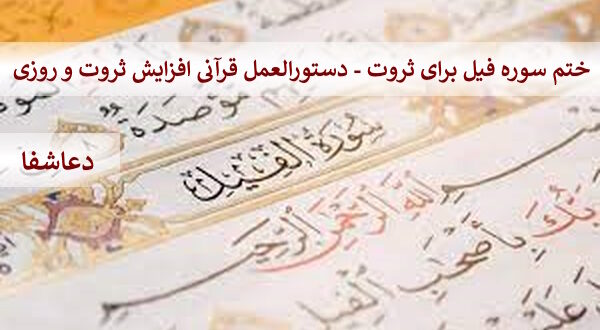 ختم سوره فیل برای ثروت - دستورالعمل قرآنی افزایش ثروت و روزی
مُّؤْصَدَةٌ
دعاشفا
سورة الفيل
اللَّهِ الرَّحْمَٰنِ الرَّحِيمِ
رَبُّكَ بِأَصْحَٰبِ الْفِيلِ